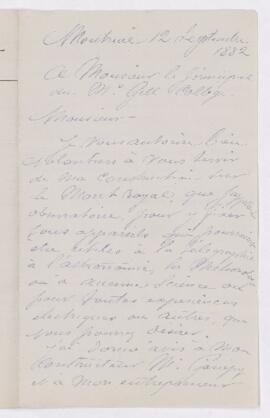 Montreal 12 Septembre
1882
A Monsieur le principal
du Mc Gill College
Monsieur -
Je vous autorise bien
volontiers à vous servir
de ma construction sur
le Mont Royal, que j'appelle
observatoire, pour y poser
tous appareils qui pourraient
être utiles à la télégraphie
à l'astronomie, la
ou à aucune science ou
pour toutes expériences
electriques ou autres, que
vous pourrez désirer.
J'ai donné avis à mon
constructeur Mr.
et à mon entrepreneur